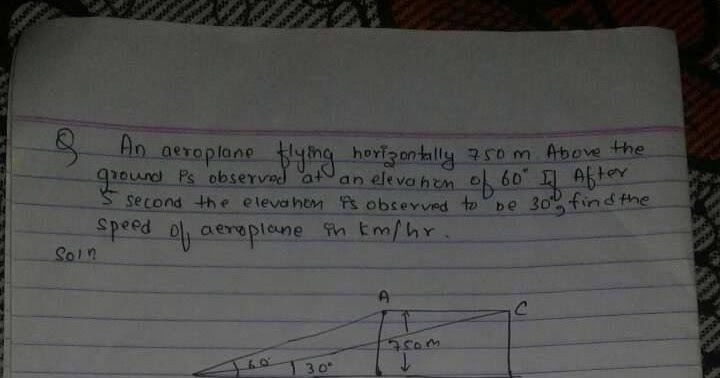 Q An aeroplane flying horizontally 750 m Above the
ground is observed at an elevation of 60° If After
5 second the elevation is observed to be 30°, find the
speed of aeroplane in km/hr.
Soln
A
C
750m
60°
30°